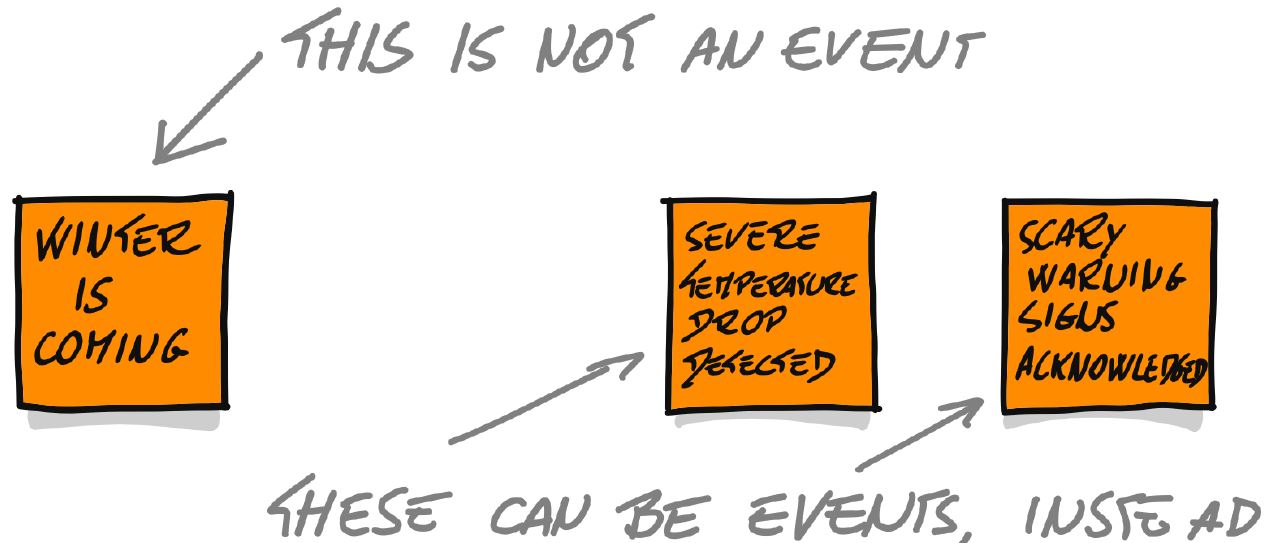 THIS IS NOT AN EVENT
WINTER
IS
COMING
SEVERE
TEMPERATURE
DROP
DETECTED
SCARY
WARNING
SIGNS
ACKNOWLEDGED
THESE CAN BE EVENTS, INSTEAD